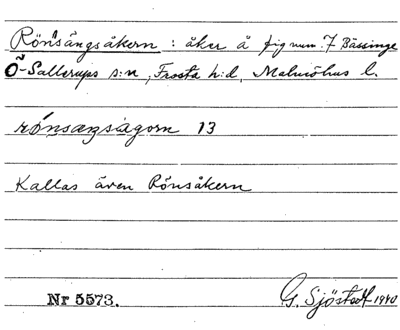 Rönsängsåkern : åker å fig num. 7 Bässinge
Ö-Sallerups s:n, Frosta h:d, Malmöhus l.
rönsæŋsågorn 13
Kallas även Rönsåkern
Nr 5573. G. Sjöstedt 1940